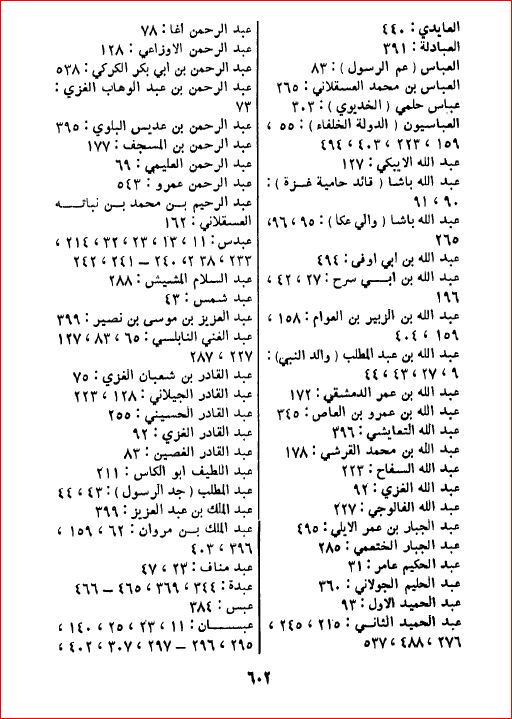 العايدي : ٤٤٠
العبادلة : ٣٩١
العباس ( عم الرسول ) : ٨٣
العباس بن محمد العسقلاني : ٢٦٥
عباس حلمي ( الخديوي ) : ٣٠٢
العباسيون ( الدولة الخلفاء ) : ٥٥ ،
١٥٩ ، ٢٢٣ ، ٤٠٣ ، ٤٩٤
عبد الله الايبكي : ١٢٧
عبد الله باشا ( قائد حامية غزة ) :
٩٠ ، ٩١
عبد الله باشا ( والي عكا ) : ٩٥ ، ٩٦،
٢٦٥
عبد الله بن ابي اوفى : ٤٩٤
عبد الله بن ابـــي سرح : ٢٧ ، ٤٢ ،
١٩٦
عبد الله بن الزبير بن العوام : ١٥٨ ،
١٥٩ ، ٤٠٤
عبد الله بن عبد المطلب ( والد النبي) :
٩ ، ٢٧ ، ٤٣ ، ٤٤
عبد الله بن عمر الدمشقي : ١٧٢
عبد الله بن عمرو بن العاص : ٣٤٥
عبد الله التعايشي : ٣٩٦
عبد الله بن محمد القرشي : ١٧٨
عبد الله السفاح : ٢٢٣
عبد الله الغزي : ٩٢
عبد الله الفالوجي : ٢٢٧
عبد الجبار بن عمر الايلي : ٤٩٥
عبد الجبار الخثعمي : ٢٨٥
عبد الحكيم عامر : ٣١
عبد الحليم الجولاني : ٣٦٠
عبد الحميد الاول : ٩٣
عبد الحميد الثانـي : ٢١٥ ، ٢٤٥ ،
٢٧٦ ، ٤٨٨ ، ٥٣٧
عبد الرحمن آغا : ٧٨
عبد الرحمن الاوزاعي : ١٢٨
عبد الرحمن بن ابي بكر الكركي : ٥٣٨
عبد الرحمن بن عبد الوهاب الغزي :
٧٣
عبد الرحمن بن عديس البلوي : ٣٩٥
عبد الرحمن بن المسجف : ١٧٧
عبد الرحمن العليمي : ٦٩
عبد الرحمن عمرو : ٥٤٣
عبد الرحيم بـن محمد بـن نباتـــه
العسقلاني : ١٦٢
عبدس : ١١ ، ١٣ ، ٢٣ ، ٣٢ ، ٢١٤ ،
٢٣٣ ، ٢٣٨ ، ٢٤٠ – ٢٤١ ، ٢٤٢
عبد السلام المشيش : ٢٨٨
عبد شمس : ٤٣
عبد العزيز بن موسى بن نصير : ٣٩٩
عبد الغني النابلسي : ٦٥ ، ٨٣ ، ١٢٧
، ٢٢٧ ، ٢٨٧
عبد القادر بن شعبان الغزي : ٧٥
عبد القادر الجيلاني : ١٢٨ ، ٢٢٣
عبد القادر الحسيني : ٢٥٥
عبد القادر الغزي : ٩٢
عبد القادر الغصين : ٨٣
عبد اللطيف ابو الكاس : ٢١١
عبد المطلب ( جد الرسول ) : ٤٣ ، ٤٤
عبد الملك بن عبد العزيز : ٣٩٩
عبد الملك بـن مروان : ٦٢ ، ١٥٩ ،
٣٩٦ ، ٤٠٣
عبد مناف : ٢٣ ، ٤٧
عبدة : ٣٤٤ ، ٣٦٩ ، ٤٦٥ – ٤٦٦
عبس : ٣٨٤
عبســـــان : ١١ ، ٢٣ ، ٢٥ ، ١٤٠ ،
٢٩٥ ، ٢٩٦ – ٢٩٧ ، ٣٠٧ ، ٤٠٢ ،
٦٠٢